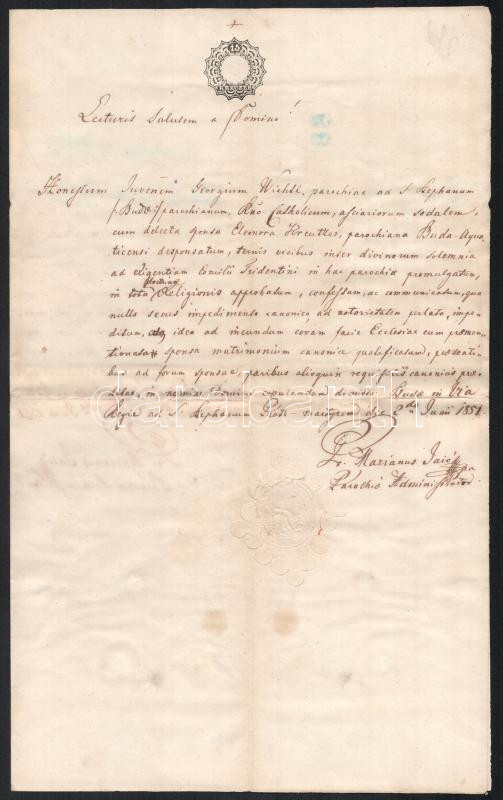 Lecturis Salutem a Domino!
Honestum Juvenem Georgium Wichtl, parochiae ad S. Stephanum
/:Budae:/ parochianum, Rno Catholicum, asciariorum sodalem,
cum delecta sponsa Eleonora Kreutzer, parochiana Buda-Aqua-
ticensi desponsatum, ternis vicibus inter divinorum solemnia
ad exigentiam Concilii Tridentini in hac parochia promulgatum,
in Religionis approbatum, confessum, ac communicatum, quo
nullo secus impedimento canonico, ad notorietatem prolato, impe-
ditum, ideo ad ineundum coram facie Ecclesiae cum praemen-
tionata sponsa matrimonium canonice qualificatum, praesenti-
bus ad forum sponsae, paribus alioquin requisitis canonicis
in nomine Domini copulandum dimitto. Budae in Via
Regia ad S. Stephanum Proto martyrem die 2da Junii 1851.
P. Marianus
Parochiae Administrator
darabanth